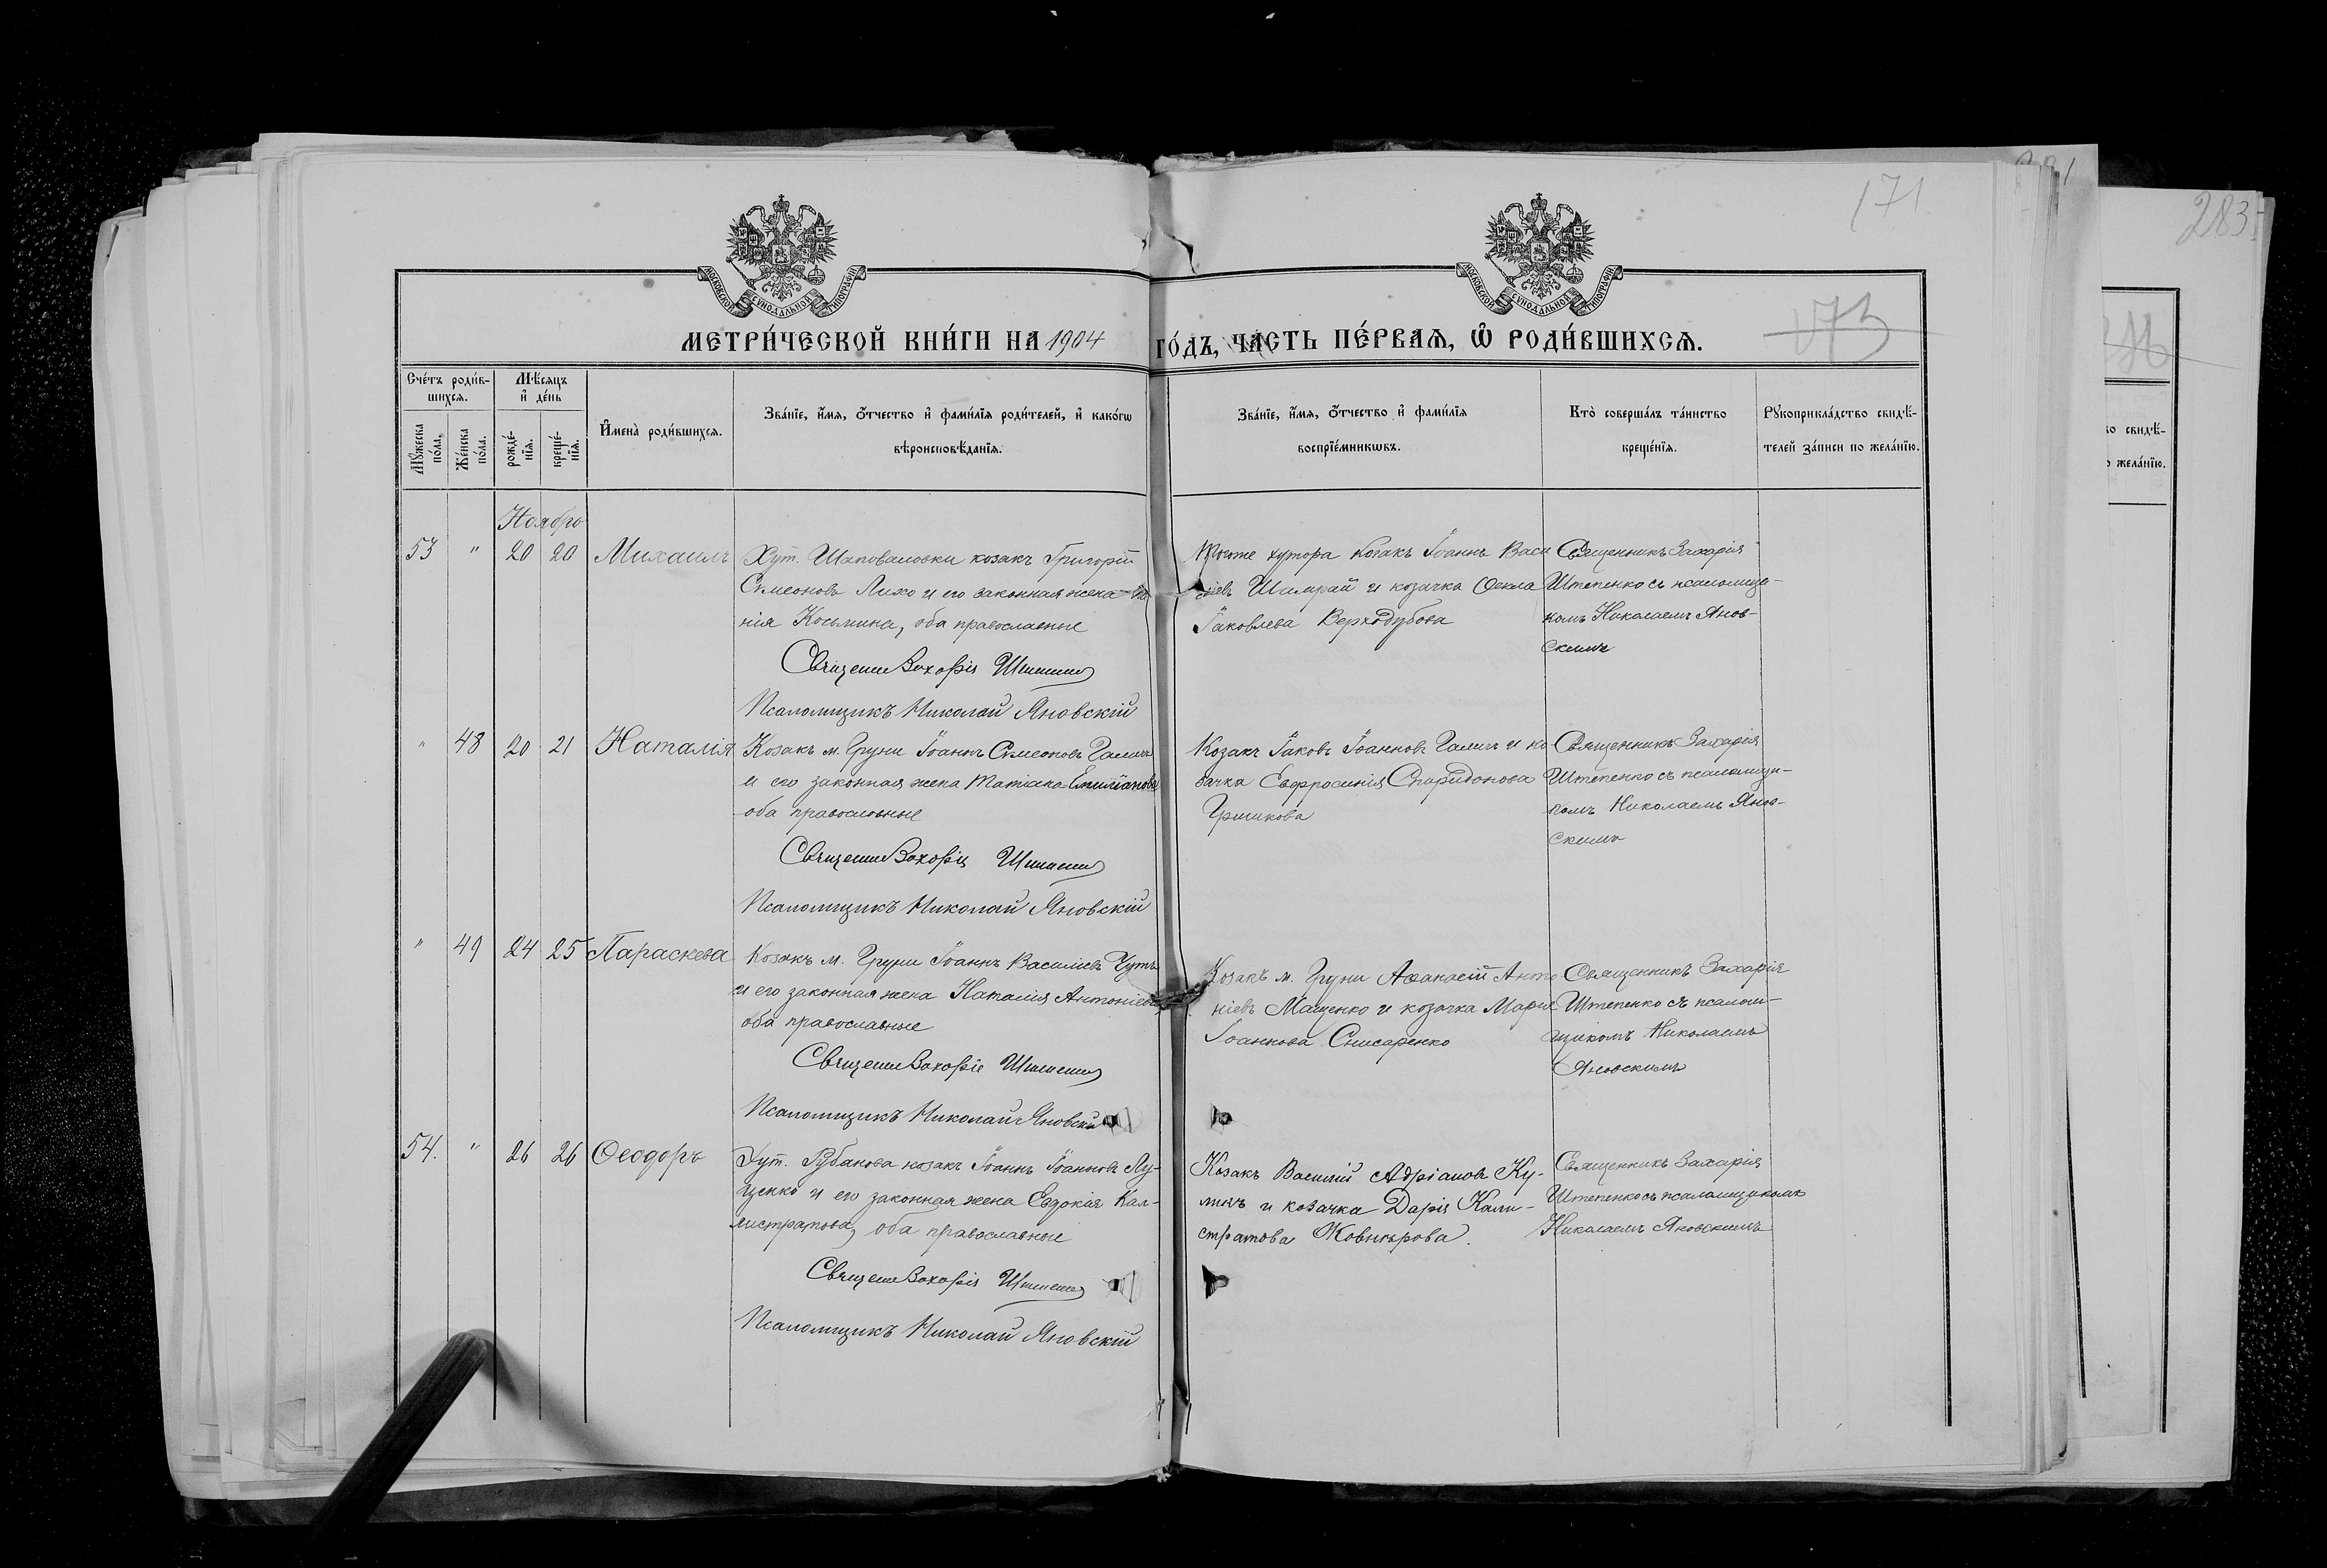 171
283
МОСКОВСКОЙ СУНОДАЛЬНОЙ ТИПОГРАФІИ
МОСКОВСКОЙ СУНОДАЛЬНОЙ ТИПОГРАФІИ
МЕТРИ́ЧЕСКОЙ КНИ́ГИ НА 1904 ГО́ДЪ, ЧА́СТЬ ПЕ́РВАѦ, Ѡ҆ РОДИ́ВШИХСѦ.
173
Сче́тъ роди́в-
шихсѧ.
Мѣ́сѧцъ
и҆ де́нь
Мꙋ́жеска
по́ла.
Же́нска
по́ла.
рожде́-
нїѧ.
креще́-
нїѧ.
И҆мена̀ роди́вшихсѧ.
Зва́нїе, и҆́мѧ, ѻ҆́тчество и҆ фами́лїѧ роди́телей, и҆ како́гѡ
вѣроисповѣ́данїѧ.
Зва́нїе, и҆́мѧ, ѻ҆́тчество и҆ фами́лїѧ
воспрїе́мникѡвъ.
Кто̀ соверша́лъ та́инство
креще́нїѧ.
Рꙋкоприкла́дство свидѣ́-
телей за́писи по жела́нїю.
свидѣ́-
жела́нїю.
Ноябрь
53 " 20 20 Михаилъ
Хут. Шаповаловки козакъ Григорій
Симеоновъ Лихо и его законная жена
нія Косьмина, оба православные
Священ Захарія Штепенко
Псаломщикъ Николай Яновскій
хутора козакъ Іоаннъ Васи
ліевъ Шамрай и козачка Ѳекла
Іаковлева Верходубова
Священникъ Захарія
Штепенко съ псаломщи-
комъ Николаемъ Янов-
скимъ
" 48 20 21 Наталія
Козакъ м. Груни Іоаннъ Симеоновъ Галичъ
и его законная жена Емиліанова
оба православные
Священ Захарія Штепенко
Псаломщикъ Николай Яновскій
Козакъ Іаковъ Іоанновъ Галичъ и ко
зачка Евфросинія Спиридонова
Священникъ Захарія
Штепенко съ псаломщи-
комъ Николаемъ Янов-
скимъ
" 49 24 25 Параскева
Козакъ м. Груни Іоаннъ Василіевъ Чутъ
и его законная жена Наталія Антоніева
оба православные
Священ Захарія Штепенко
Псаломщикъ Николай Яновскій
Козакъ м. Груни Аѳанасій Анто
ніевъ Мащенко и козачка Марія
Іоаннова Снисаренко
Священникъ Захарія
Штепенко съ псалом-
щикомъ Николаемъ
Яновскимъ
54. " 26 26 Ѳеодоръ
Хут. Рубанова козакъ Іоаннъ Іоанновъ Лу-
ценко и его законная жена Евдокія Кал-
листратова, оба православные
Священ Захарія Штепенко
Псаломщикъ Николай Яновскій
Козакъ Василій Адріановъ Ку-
личъ и козачка Дарія Кали-
стратова
Священникъ Захарія
Штепенко съ псаломщикомъ
Николаемъ Яновскимъ